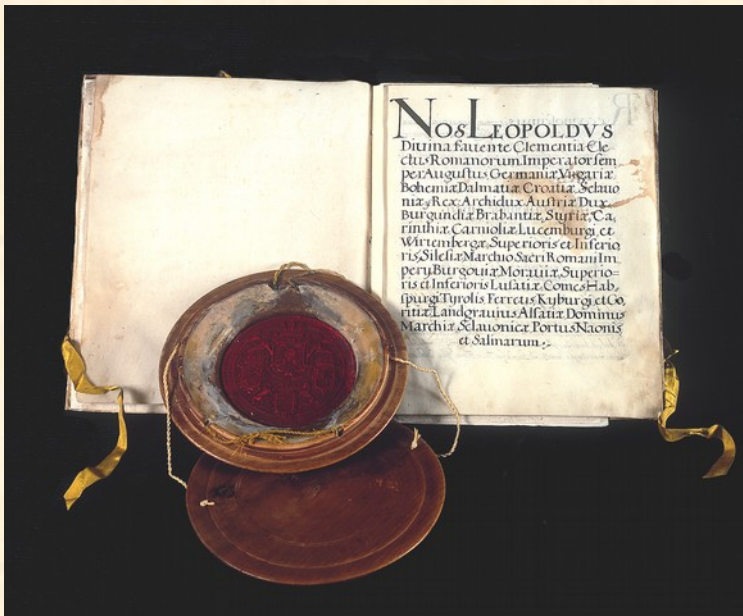 NOS LEOPOLDVS
Diuina fauente Clementia Ele-
ctus Romanorum Imperator sem
per Augustus, Germaniæ, Vngariæ
Bohemiæ Dalmatiæ Croatiæ, Sclauo
niæq Rex, Archidux Austriæ, Dux
Burgundiæ Brabantiæ, Styriæ, Ca,
rinthiæ, Carnioliæ Lucemburgi, et
Wirtembergæ, Superioris et Inferio
ris, Silesiæ, Marchio Sacri Romani Im
perij Burgouiæ, Morauiæ, Superio=
ris et Inferioris Lusatiæ, Comes Hab,
spurgi, Tyrolis, Ferretis, Kyburgi, et Go
ritiæ, Landgrauius Alsatiæ, Dominus
Marchiæ Sclauonicæ, Portus Naonis
et Salinarum.